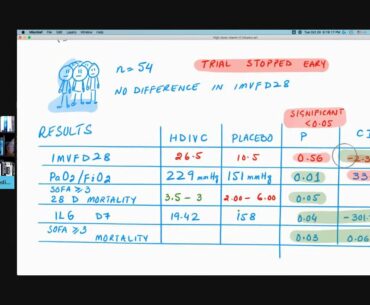 n = 54
TRIAL STOPPED EARY
NO DIFFERENCE IN IMVFD28
SIGNIFICANT
<0.05
RESULTS HDIVC PLACEBO P CI
IMVFD28 26.5 10.5 0.56
PaO2/FiO2 229 mmHg 151 mmHg 0.01
SOFA ≥3
28 D MORTALITY 3.5 - 3 2.00 - 6.00 0.05
IL6 D7 19.42 158 0.04 -301.
SOFA ≥3
MORTALITY 0.03 0.06